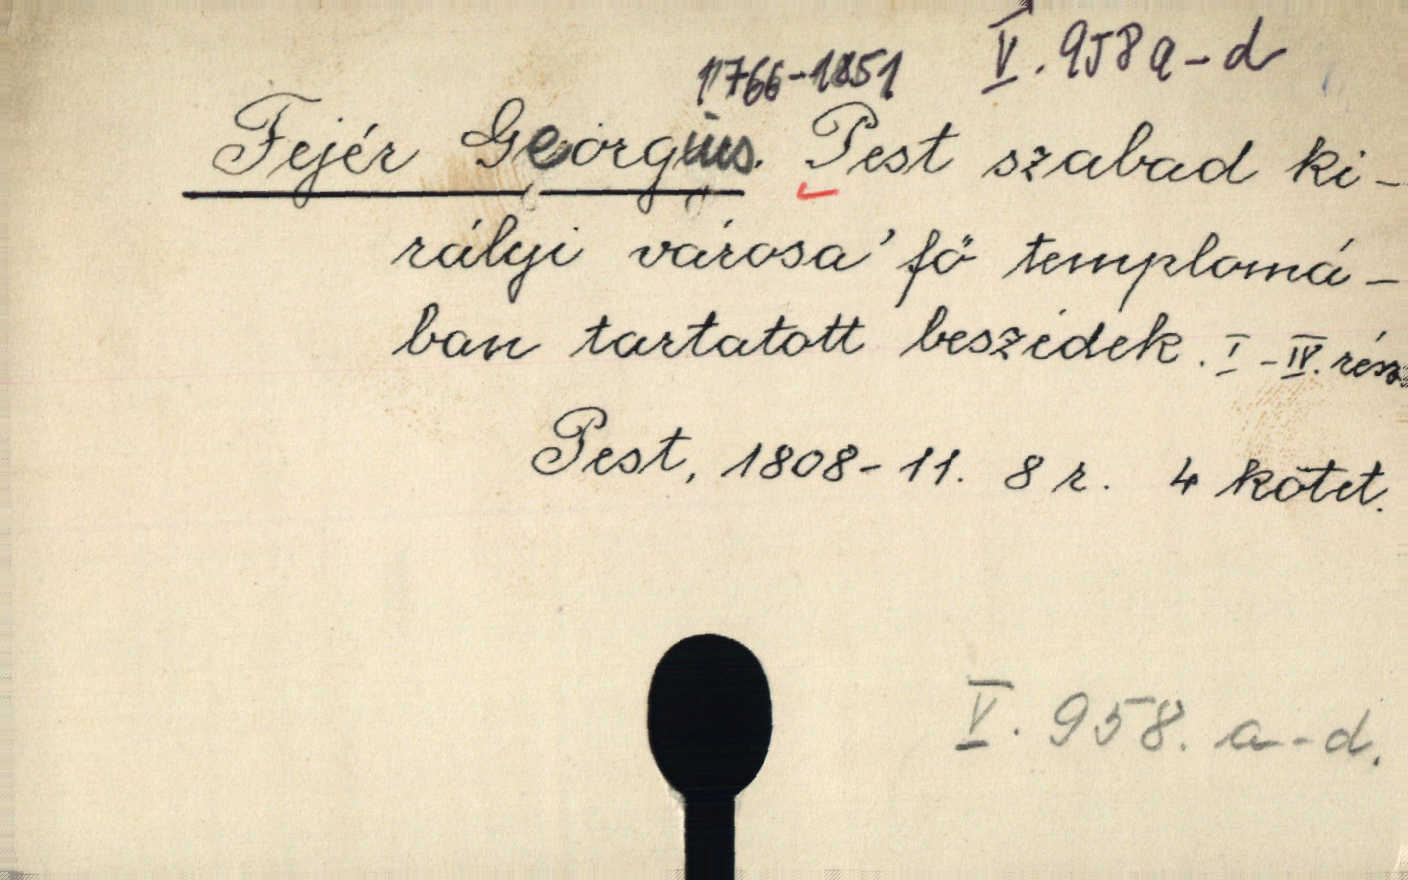 V. 958 a-d
1766-1851
Fejér Georgius. Pest szabad ki-
rályi városa' fő templomá-
ban tartatott beszédek. I-IV. rész
Pest, 1808-11. 8 r. 4 kötet.
V. 958. a-d.